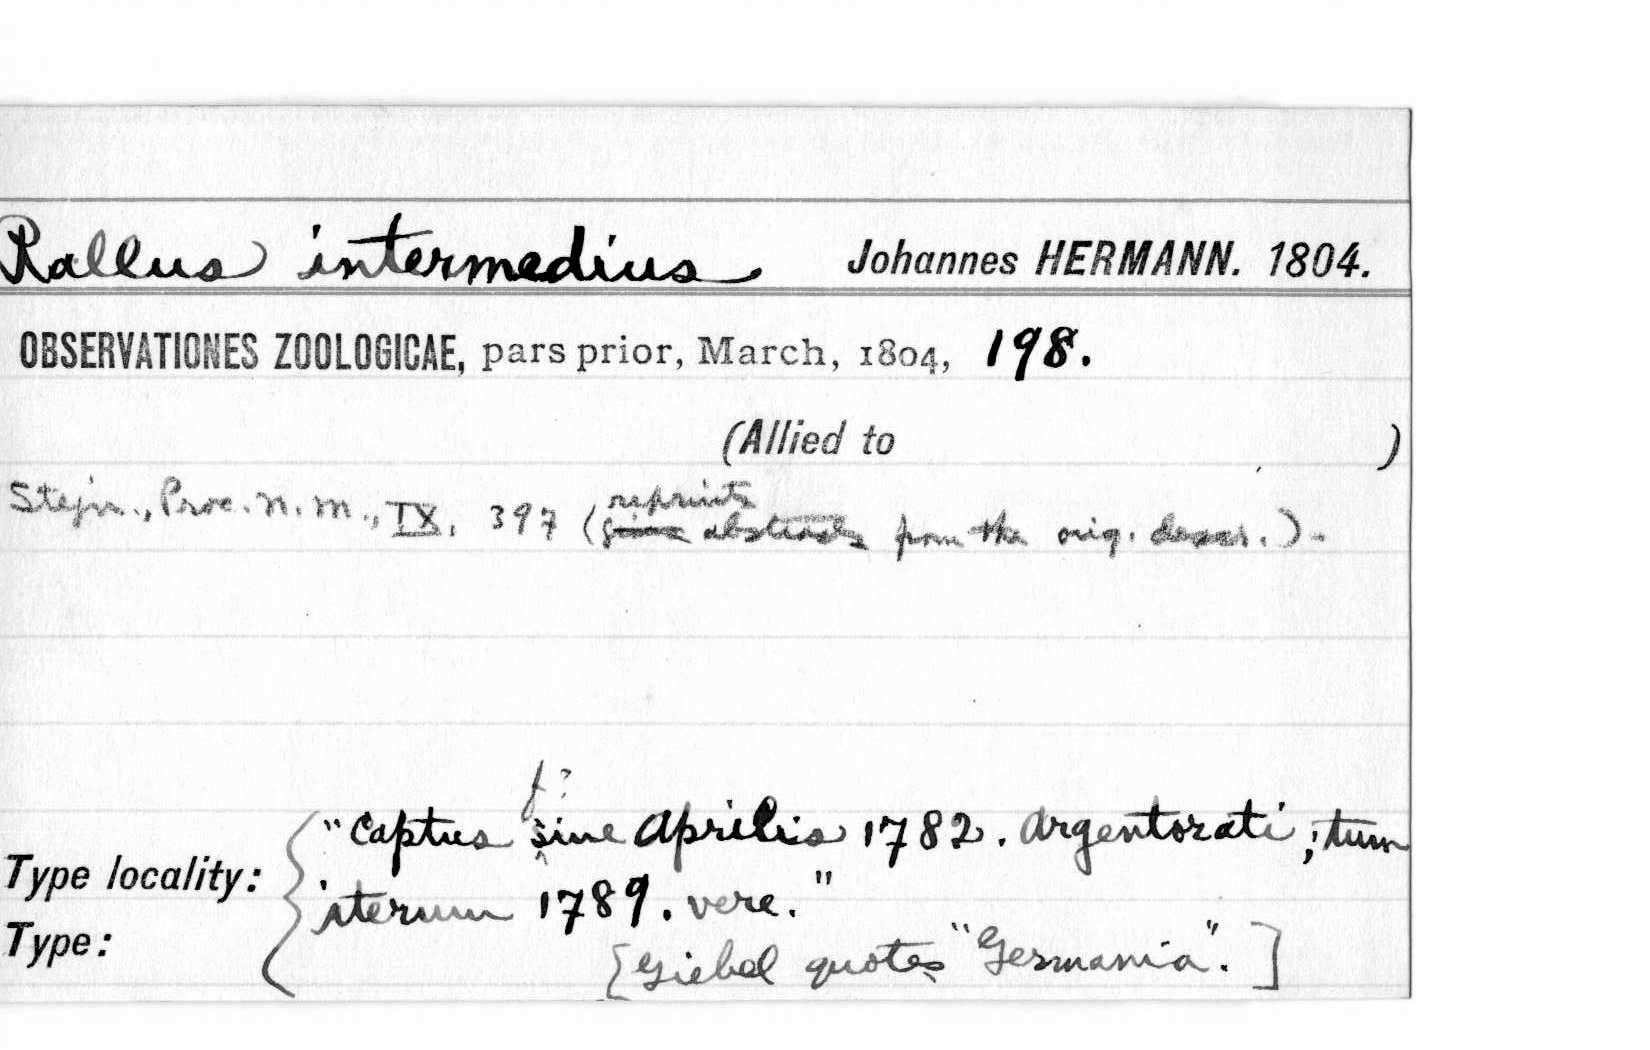 Rallus intermedius Johannes HERMANN. 1804.
OBSERVATIONES ZOOLOGICAE, pars prior, March, 1804, 198.
(Allied to )
reprints
Stejn., Proc. N. M., IX, 397 (gives abstracts from the orig. descr.).
f?
Type locality: "Captus sine Aprilis 1782. Argentorati; tum
iterum 1789. vere."
Type:
[Giebel quotes "Germania".]